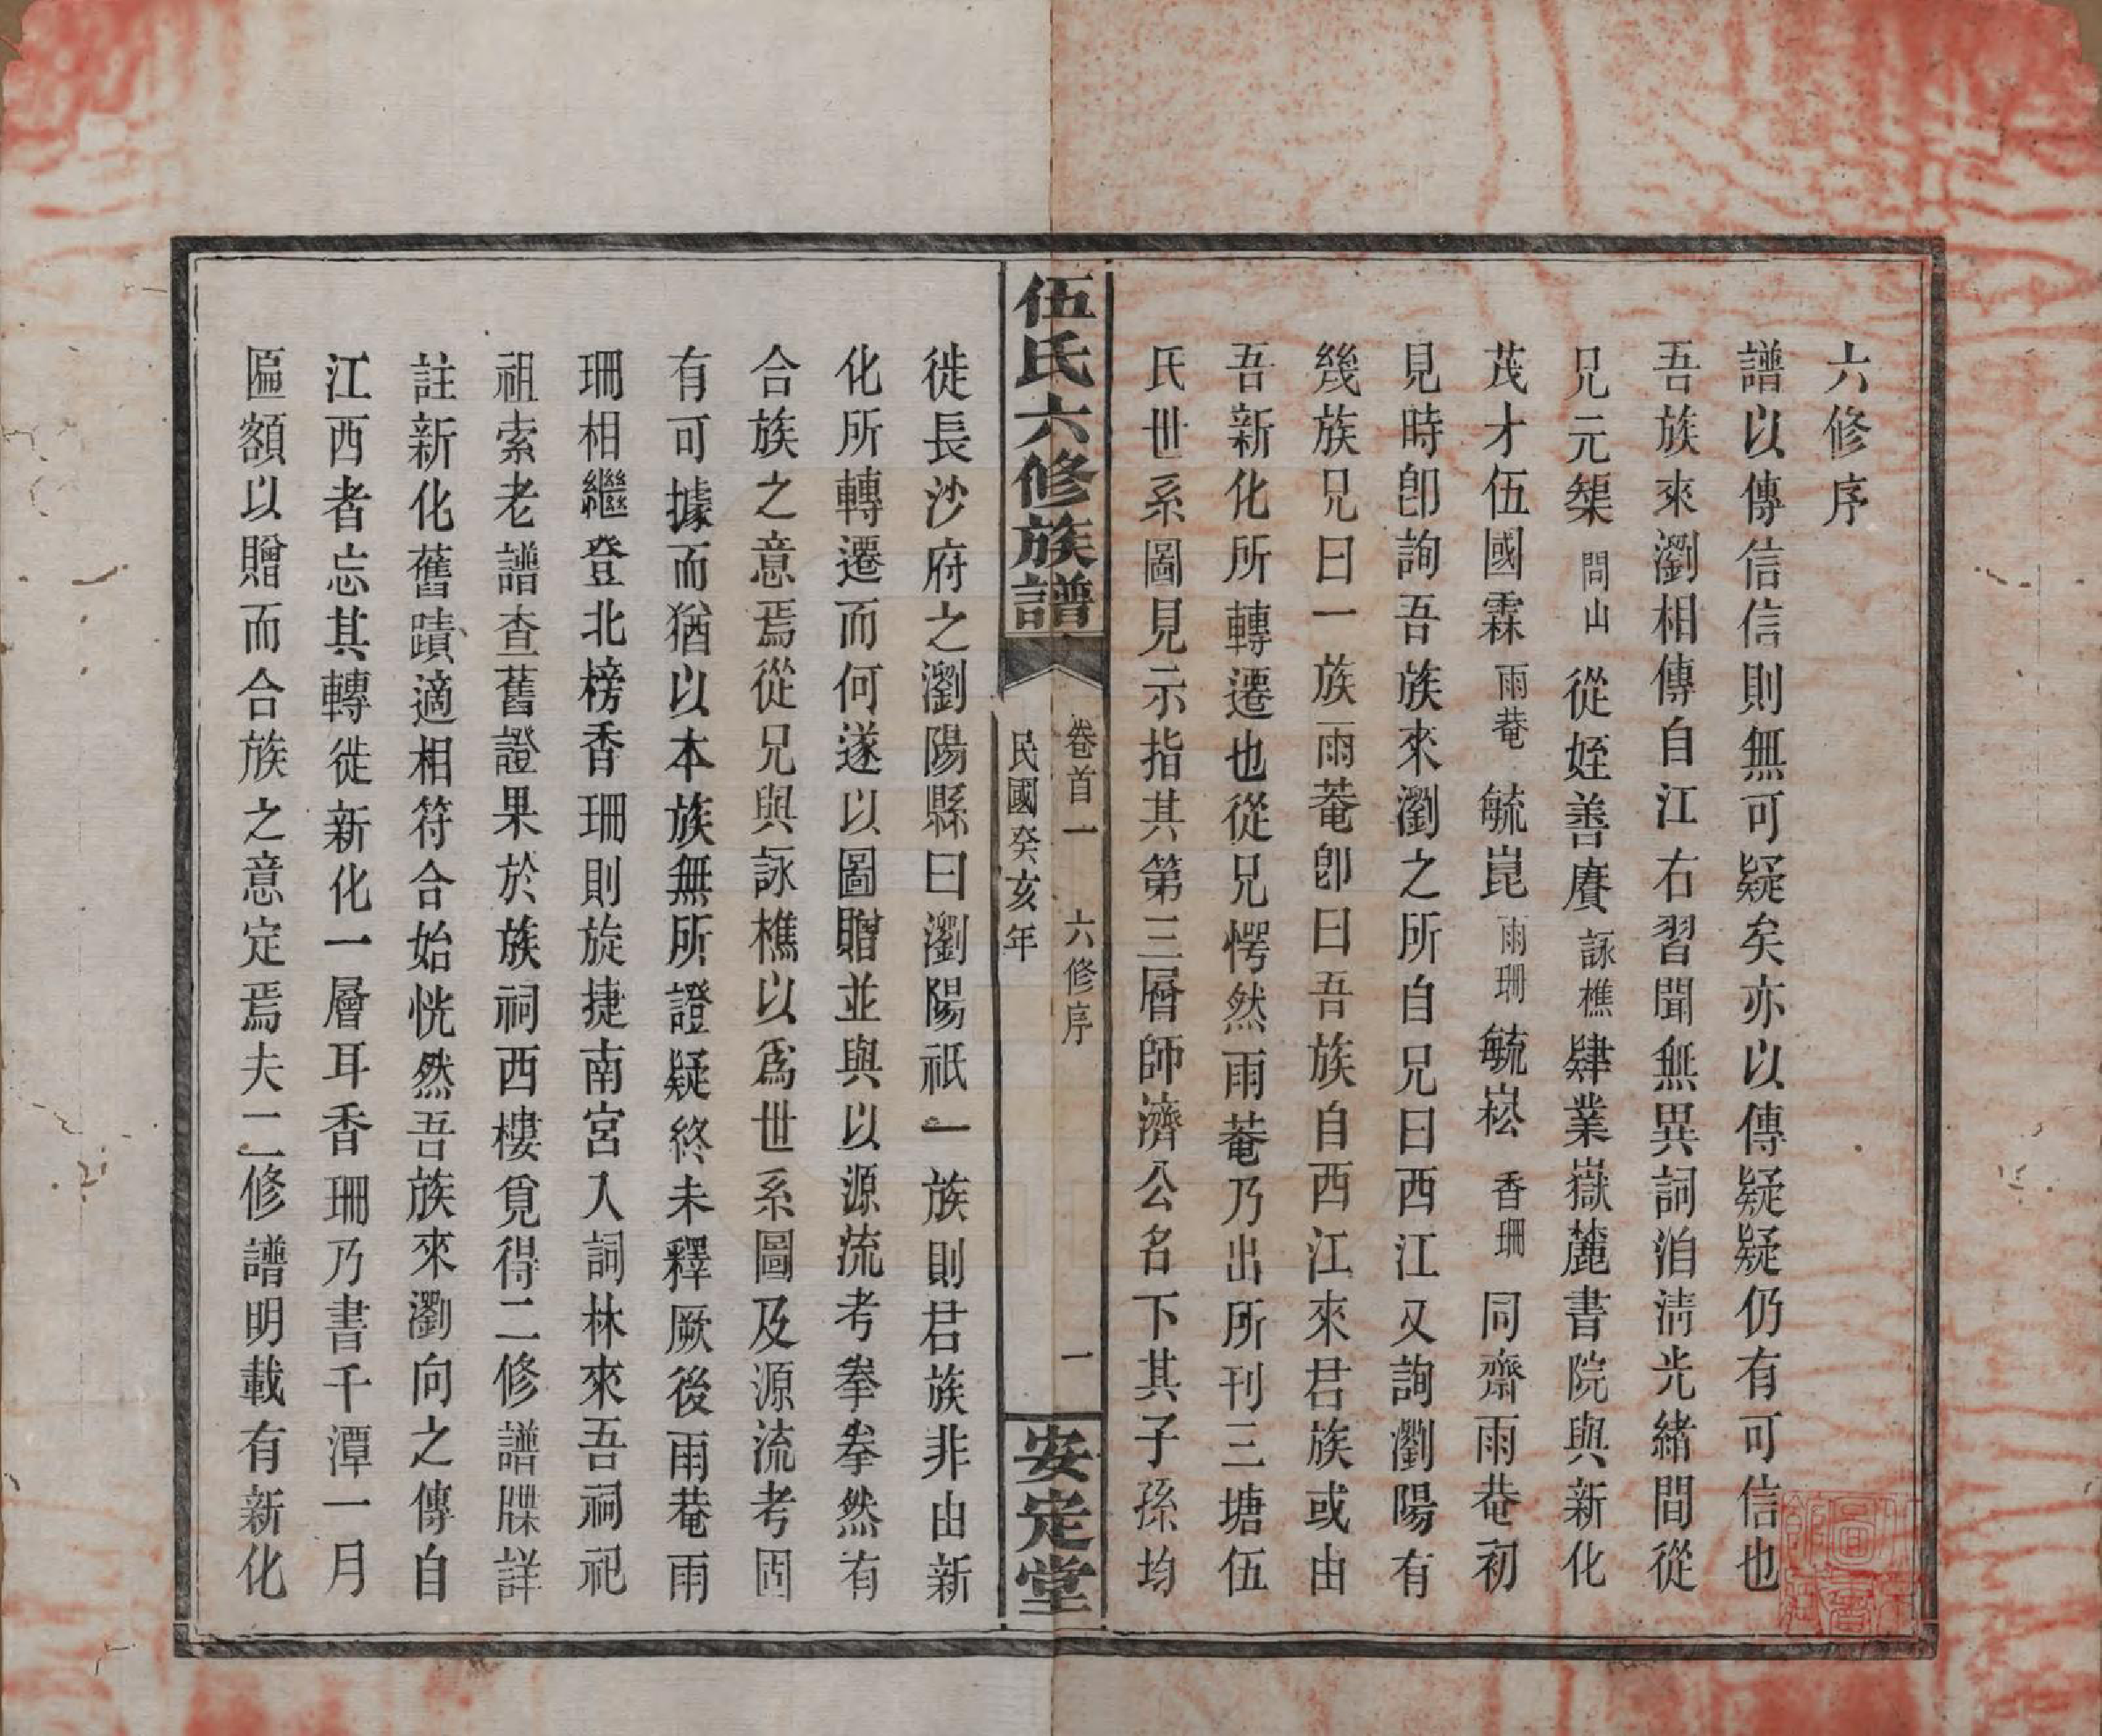 六修序
譜以傳信信則無可疑矣亦以傳疑疑仍有可信也
吾族來瀏相傳自江右習聞無異詞洎淸光緒間從
兄元榘問山從姪善賡詠樵肄業嶽麓書院與新化
茂才伍國霖雨菴毓崑雨珊毓崧香珊同齋雨菴初
見時卽詢吾族來瀏之所自兄曰西江又詢瀏陽有
幾族兄曰一族雨菴卽曰吾族自西江來君族或由
吾新化所轉遷也從兄愕然雨菴乃出所刊三塘伍
氏世系圖見示指其第三層師濟公名下其子孫均
伍氏六修族譜
卷首一 六修序 一
民國癸亥年
安定堂
徙長沙府之瀏陽縣曰瀏陽祇一族則君族非由新
化所轉遷而何遂以圖贈並與以源流考拳拳然有
合族之意焉從兄與詠樵以爲世系圖及源流考固
有可據而猶以本族無所證疑終未釋厥後雨菴雨
珊相繼登北榜香珊則旋捷南宮入詞林來吾祠祀
祖索老譜查舊證果於族祠西樓覓得二修譜牒詳
註新化舊蹟適相符合始恍然吾族來瀏向之傳自
江西者忘其轉徙新化一層耳香珊乃書千潭一月
匾額以贈而合族之意定焉夫二修譜明載有新化